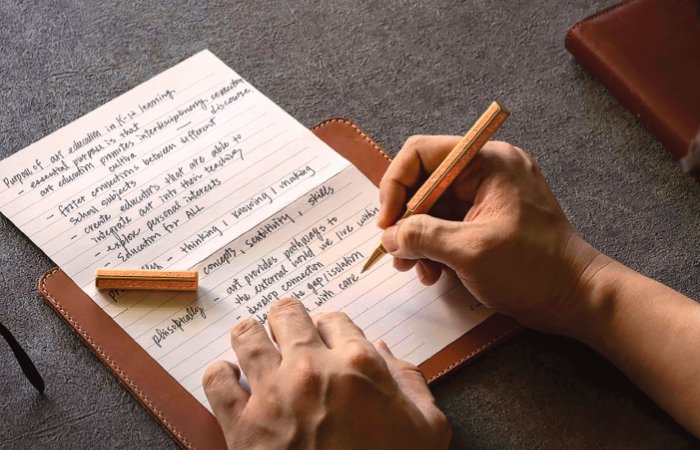 Purpose of art education in K-12 learning
- essential purpose is that
art education promotes interdisciplinary, connection
cultiva — discourse.
- foster connections between different
school subjects
- create educators that are able to
integrate art into their teaching
- explore personal interests
- Education for ALL
- thinking / knowing / making
concepts, sentitivity, skills
philosophically - art provides pathways to
the external world we live within
- develop connection
the gap/isolation
with care